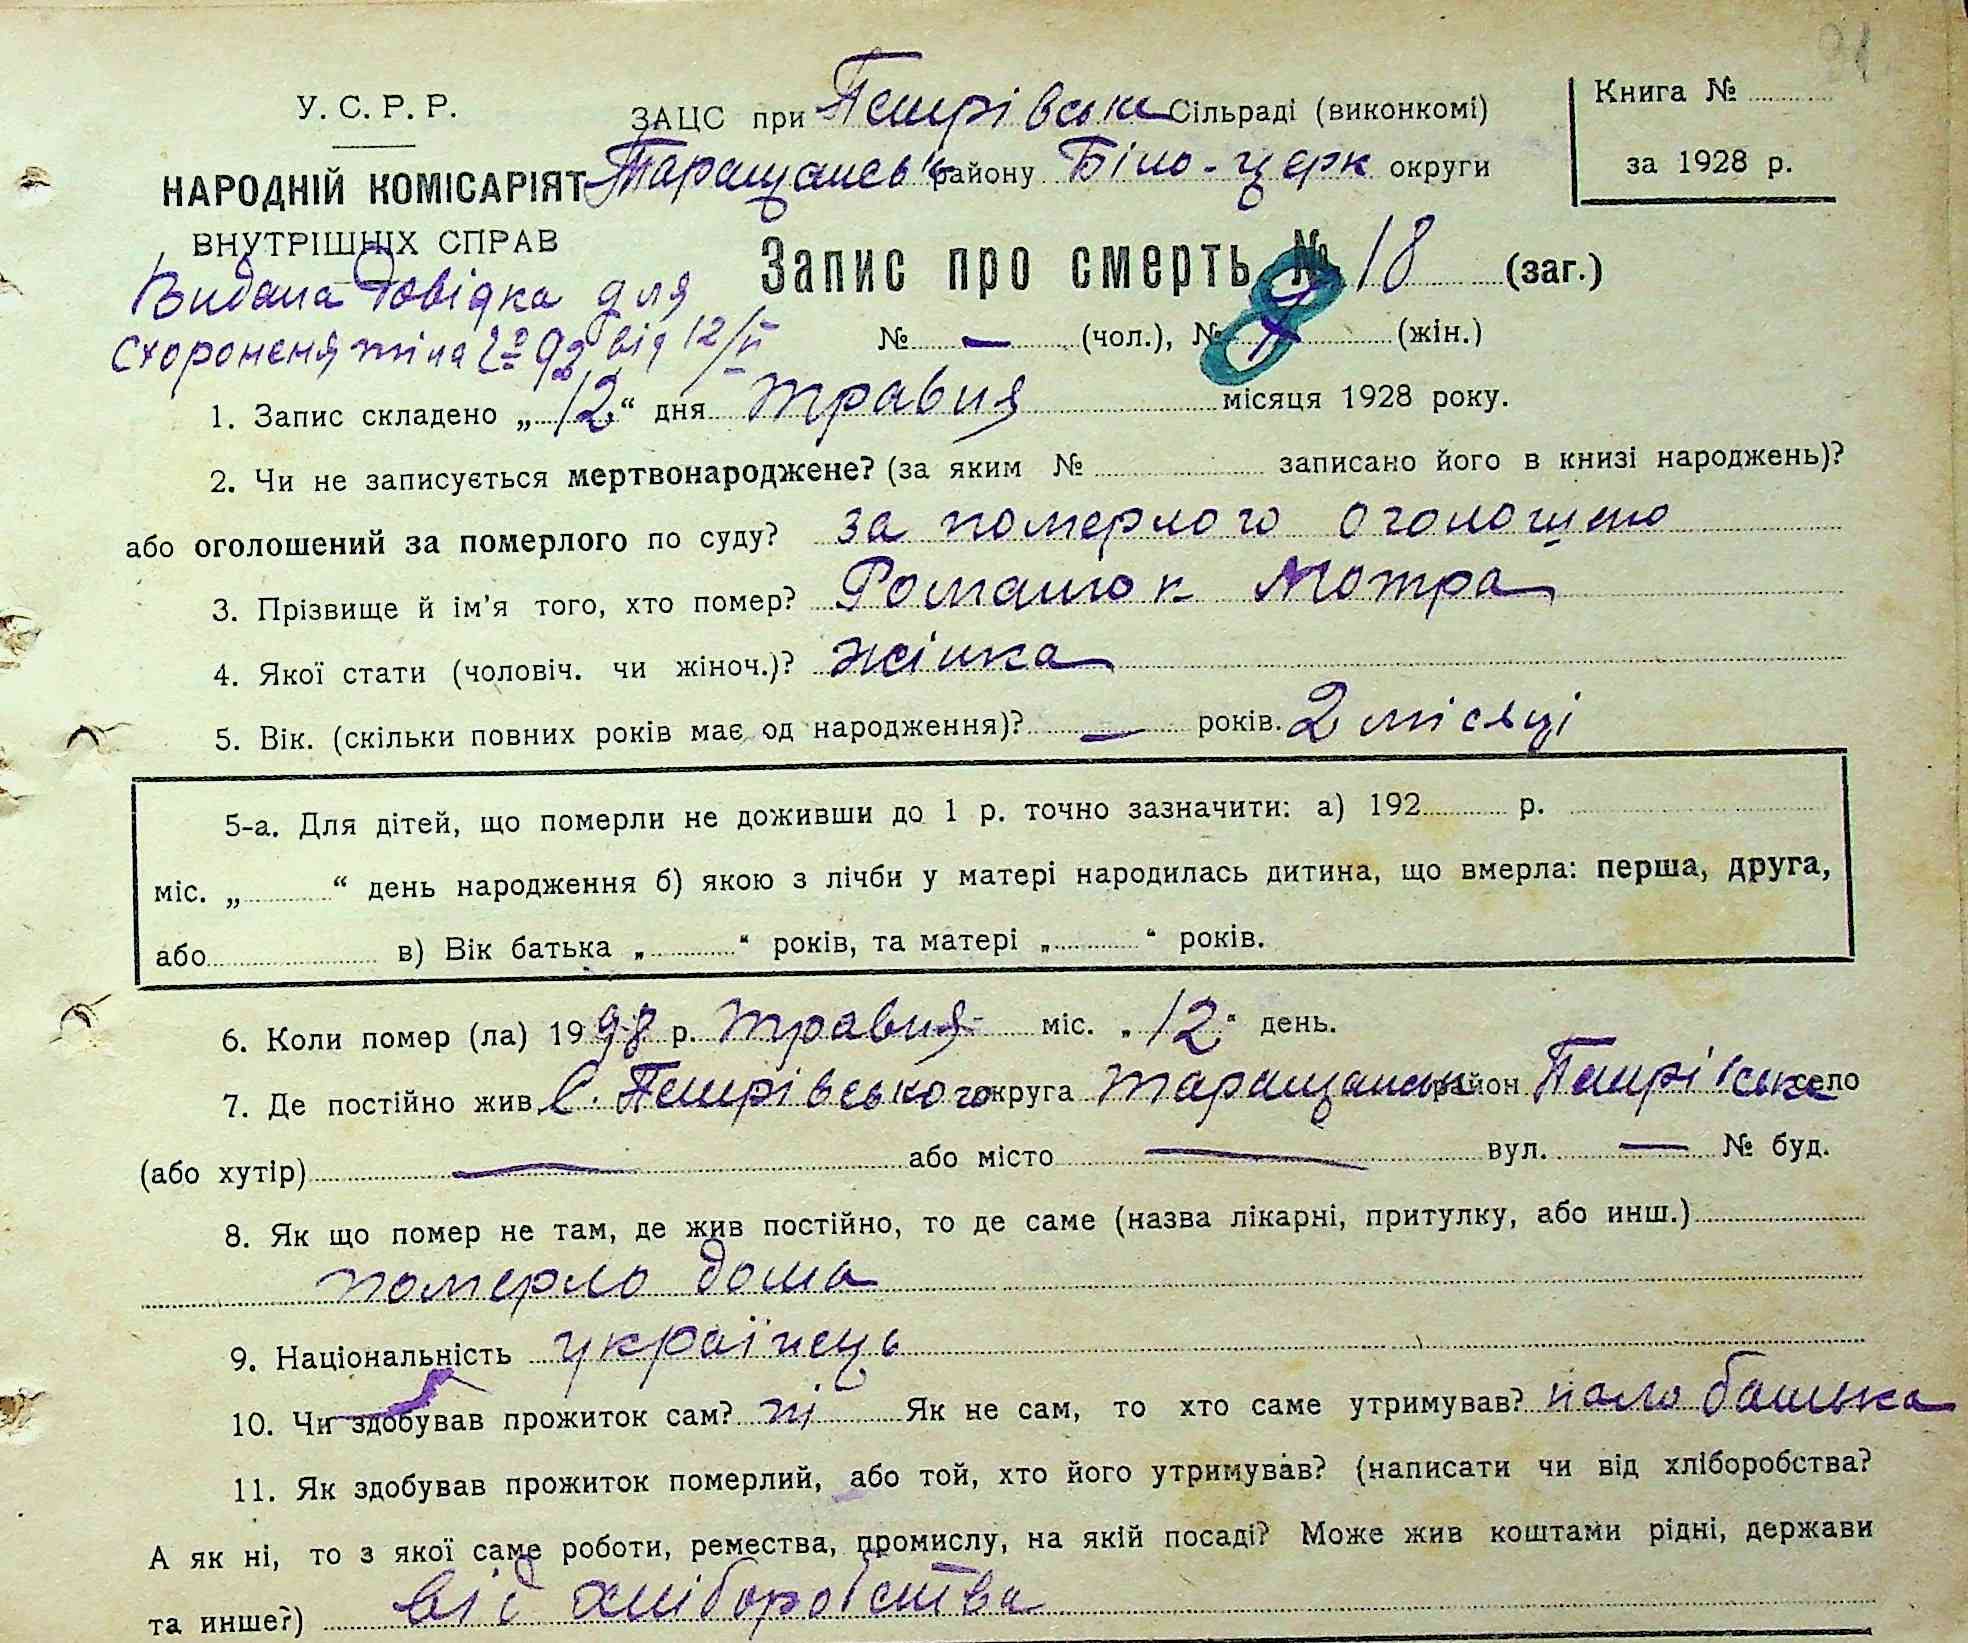 У. С. Р. Р.
НАРОДНІЙ КОМІСАРІЯТ
ВНУТРІШНІХ СПРАВ
ЗАЦС при Петрівськ Сільраді (виконкомі)
Таращанськ району Біло-церк округи
Книга №
за 1928 р.
Видана Довідка для
схороненя тіла № 92 від 12/V
Запис про смерть № 18 (заг.)
№ — (чол.), № 8 (жін.)
1. Запис складено „12" дня травня місяця 1928 року.
2. Чи не записується мертвонароджене? (за яким № записано його в книзі народжень)?
або оголошений за померлого по суду? за померлого оголошено
3. Прізвище й ім'я того, хто помер? Романюк Мотря
4. Якої стати (чоловіч. чи жіноч.)? жінка
5. Вік. (скільки повних років має од народження)? — років. 2 місяці
5-а. Для дітей, що померли не доживши до 1 р. точно зазначити: а) 192 р.
міс. „ " день народження б) якою з лічби у матері народилась дитина, що вмерла: перша, друга,
або в) Вік батька „ " років, та матері „ " років.
6. Коли помер (ла) 1928 р. травня міс. „12" день.
7. Де постійно жив с. Петрівського округа Таращанськ район Петрівське село
(або хутір) — або місто — вул. — № буд.
8. Як що помер не там, де жив постійно, то де саме (назва лікарні, притулку, або инш.)
померло дома
9. Національність українець
10. Чи здобував прожиток сам? ні Як не сам, то хто саме утримував? батька
11. Як здобував прожиток померлий, або той, хто його утримував? (написати чи від хліборобства?
А як ні, то з якої саме роботи, ремества, промислу, на якій посаді? Може жив коштами рідні, держави
та инше?) від хліборобства